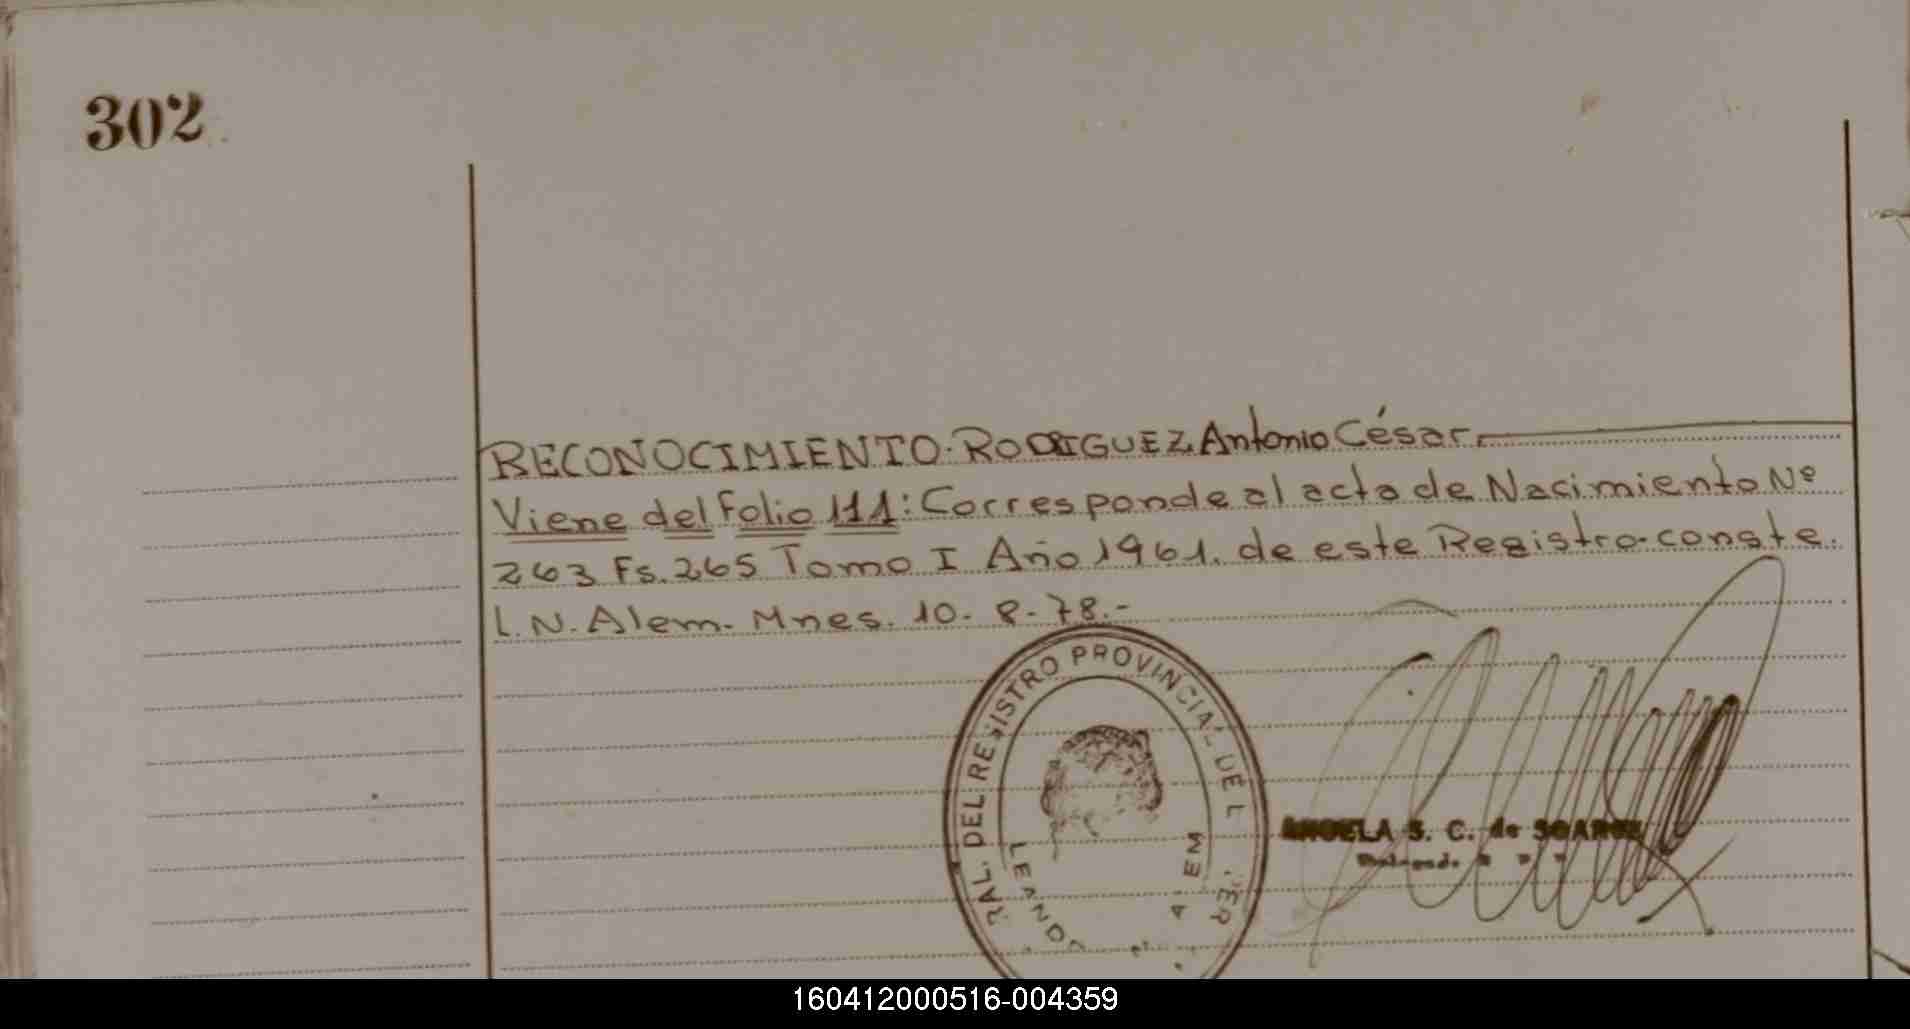 302
RECONOCIMIENTO. RODRIGUEZ Antonio César.
Viene del Folio 111: Corresponde al acta de Nacimiento Nº
263 Fs. 265 Tomo I Año 1961. de este Registro. conste.
L. N. Alem. Mnes. 10. 8. 78.-
RAL. DEL REGISTRO PROVINCIAL DE L
ANGELA S. C. de SOAREZ
160412000516-004359